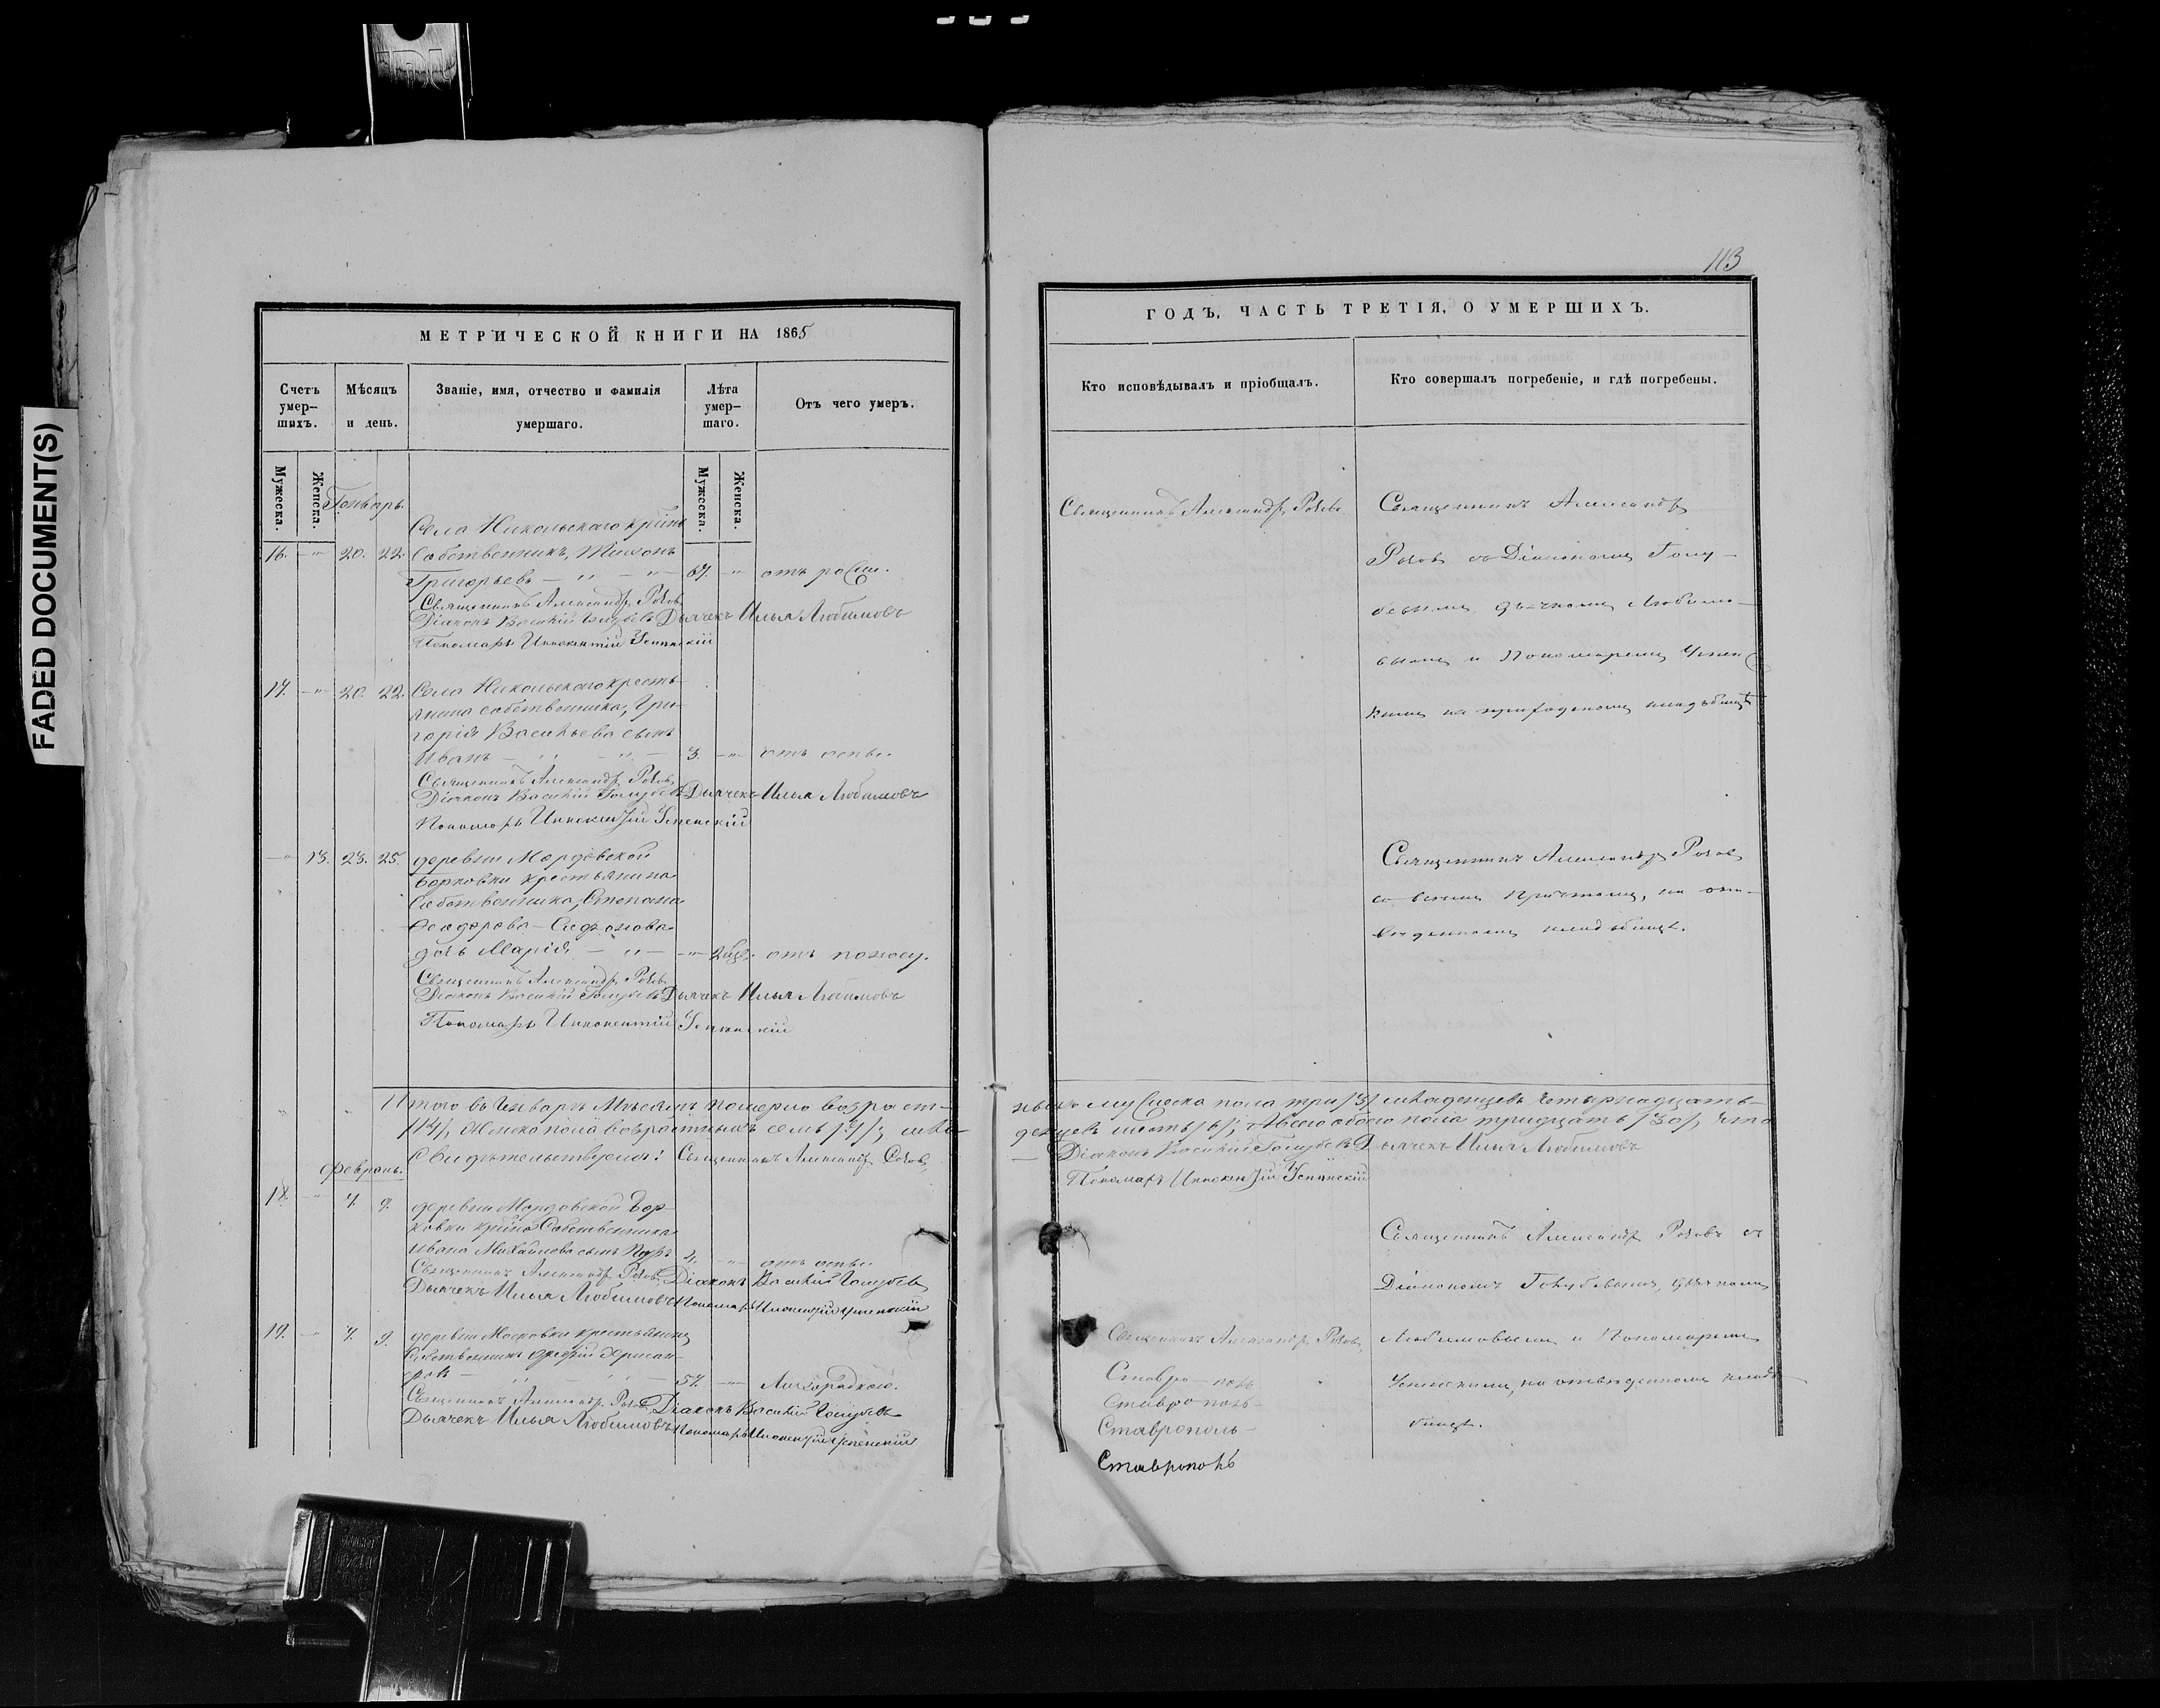 FADED DOCUMENT(S)
МЕТРИЧЕСКОЙ КНИГИ НА 1865
Счетъ умер-шихъ.
Мѣсяцъ и день.
Званіе, имя, отчество и фамилія умершаго.
Лѣта умер-шаго.
Отъ чего умеръ.
Мужеска.
Женска.
Мужеска.
Женска.
Генварь.
Села Никольскаго
16. -"- 20. 22. собственникъ, Тихонъ
Григорьевъ - " - " - 67. -"-
Священникъ Александръ
Діаконъ Василій Голубевъ Дьячекъ Илья Любимовъ
Пономарь Иннокентій Успенскій
17. -"- 20. 22. Села Никольскаго кресть-
янина собственника, Гри-
горія Васильева сынъ
Иванъ - " - " - 3. -"- отъ оспы.
Священникъ Александръ
Діаконъ Василій Голубевъ Дьячекъ Илья Любимовъ
Пономарь Иннокентій Успенскій
-"- 13. 23. 25. деревни Мордовской
Борковки крестьянина
Собственника, Степана
Ѳеодорова
дочь Марія - " - -"- отъ поносу.
Священникъ Александръ
Діаконъ Василій Голубевъ Дьячекъ Илья Любимовъ
Пономарь Иннокентій Успенскій
Итого въ Генварѣ Мѣсяцѣ померло возраст-
/14/, Женска пола возрастныхъ семь /7/; мла-
Свидѣтельствуемъ: Священникъ Александръ
Февраль.
18. -"- 7. 9. деревни Мордовской Бор-
ковки Собственника
Ивана Михайлова сынъ -"- отъ оспы.
Священникъ Александръ Діаконъ Василій Голубевъ
Дьячекъ Илья Любимовъ Пономарь Иннокентій Успенскій
19. -"- 7. 9. деревни Московки крестьянинъ
Собственникъ
57. -"- Лихорадкою.
Священникъ Александръ Діаконъ Василій Голубевъ
Дьячекъ Илья Любимовъ Пономарь Иннокентій Успенскій
113
ГОДЪ, ЧАСТЬ ТРЕТІЯ, О УМЕРШИХЪ.
Кто исповѣдывалъ и пріобщалъ.
Кто совершалъ погребеніе, и гдѣ погребены.
Священникъ Александръ
Священникъ Александръ
съ Діакономъ Голу-
бевымъ, дьячкомъ Любимо-
вымъ и Пономаремъ Успенс
кимъ на приходскомъ кладбищѣ
Священникъ Александръ
со всѣмъ Причтомъ, на отве-
веденномъ кладбищѣ.
ныхъ мужеска пола три /3/ младенцевъ четырнадцать
денцевъ шесть /6/; Авсего обоего пола тридцать /30/, что
Діаконъ Василій Голубевъ Дьячекъ Илья Любимовъ
Пономарь Иннокентій Успенскій
Священникъ Александръ съ
Діакономъ Голубевымъ, дьячкомъ
Священникъ Александръ
Любимовымъ и Пономаремъ
Успенскимъ, на отведенномъ кладъ-
бищѣ.
Ставро-поль
Ставрополь-
Ставрополь-
Ставрополь